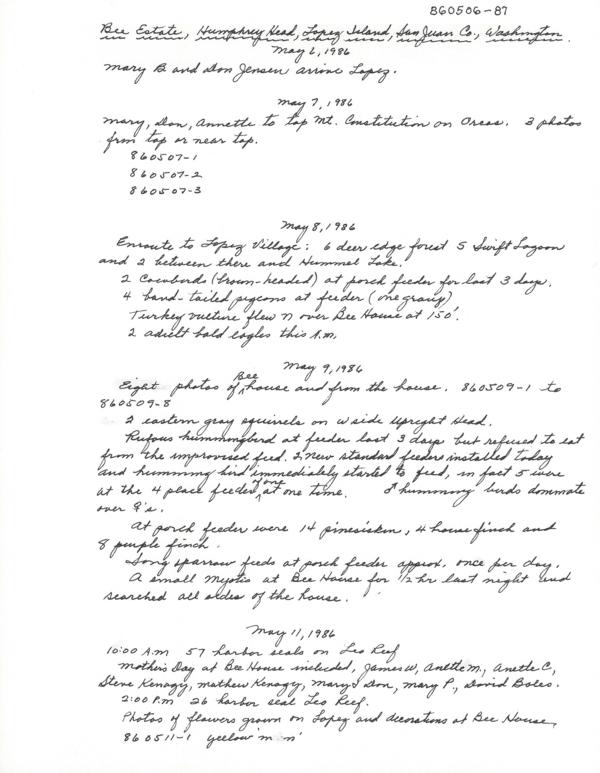 860506-87
Bee Estate, Humphrey Head, Lopez Island, San Juan Co., Washington.
May 6, 1986
Mary B. and Don Jensen arrive Lopez.
May 7, 1986
Mary, Don, Annette to top Mt. Constitution on Orcas. 3 photos
from top or near top.
860507-1
860507-2
860507-3
May 8, 1986
Enroute to Lopez Village: 6 deer edge forest S Swift Lagoon
and 2 between there and Hummel Lake.
2 Cowbirds (brown-headed) at porch feeder for last 3 days.
4 band-tailed pigeons at feeder (one group)
Turkey vulture flew N over Bee House at 150'.
2 adult bald eagles this A.M.
May 9, 1986
Eight photos of Bee house and from the house. 860509-1 to
860509-8
2 eastern gray squirrels on W side Upright Head.
Rufous hummingbird at feeder last 3 days but refused to eat
from the improvised feed. 2 new standard feeders installed today
and humming bird immediately started to feed, in fact 5 were
at the 4 place feeder at one time. ♂ humming birds dominate
over ♀'s.
At porch feeder were 14 pinesiskin, 4 house finch and
8 purple finch.
Song sparrow feeds at porch feeder approx. once per day.
A small Myotis at Bee House for 1/2 hr last night and
searched all sides of the house.
May 11, 1986
10:00 A.M 57 harbor seals on Leo Reef
Mothers Day at Bee House included, James W, Anette M., Anette C,
Steve Kenagy, Mathew Kenagy, Mary & Don, Mary P., David Boles.
2:00 P.M 26 harbor seal Leo Reef.
Photos of flowers grown on Lopez and decorations at Bee House,
860511-1 yellow